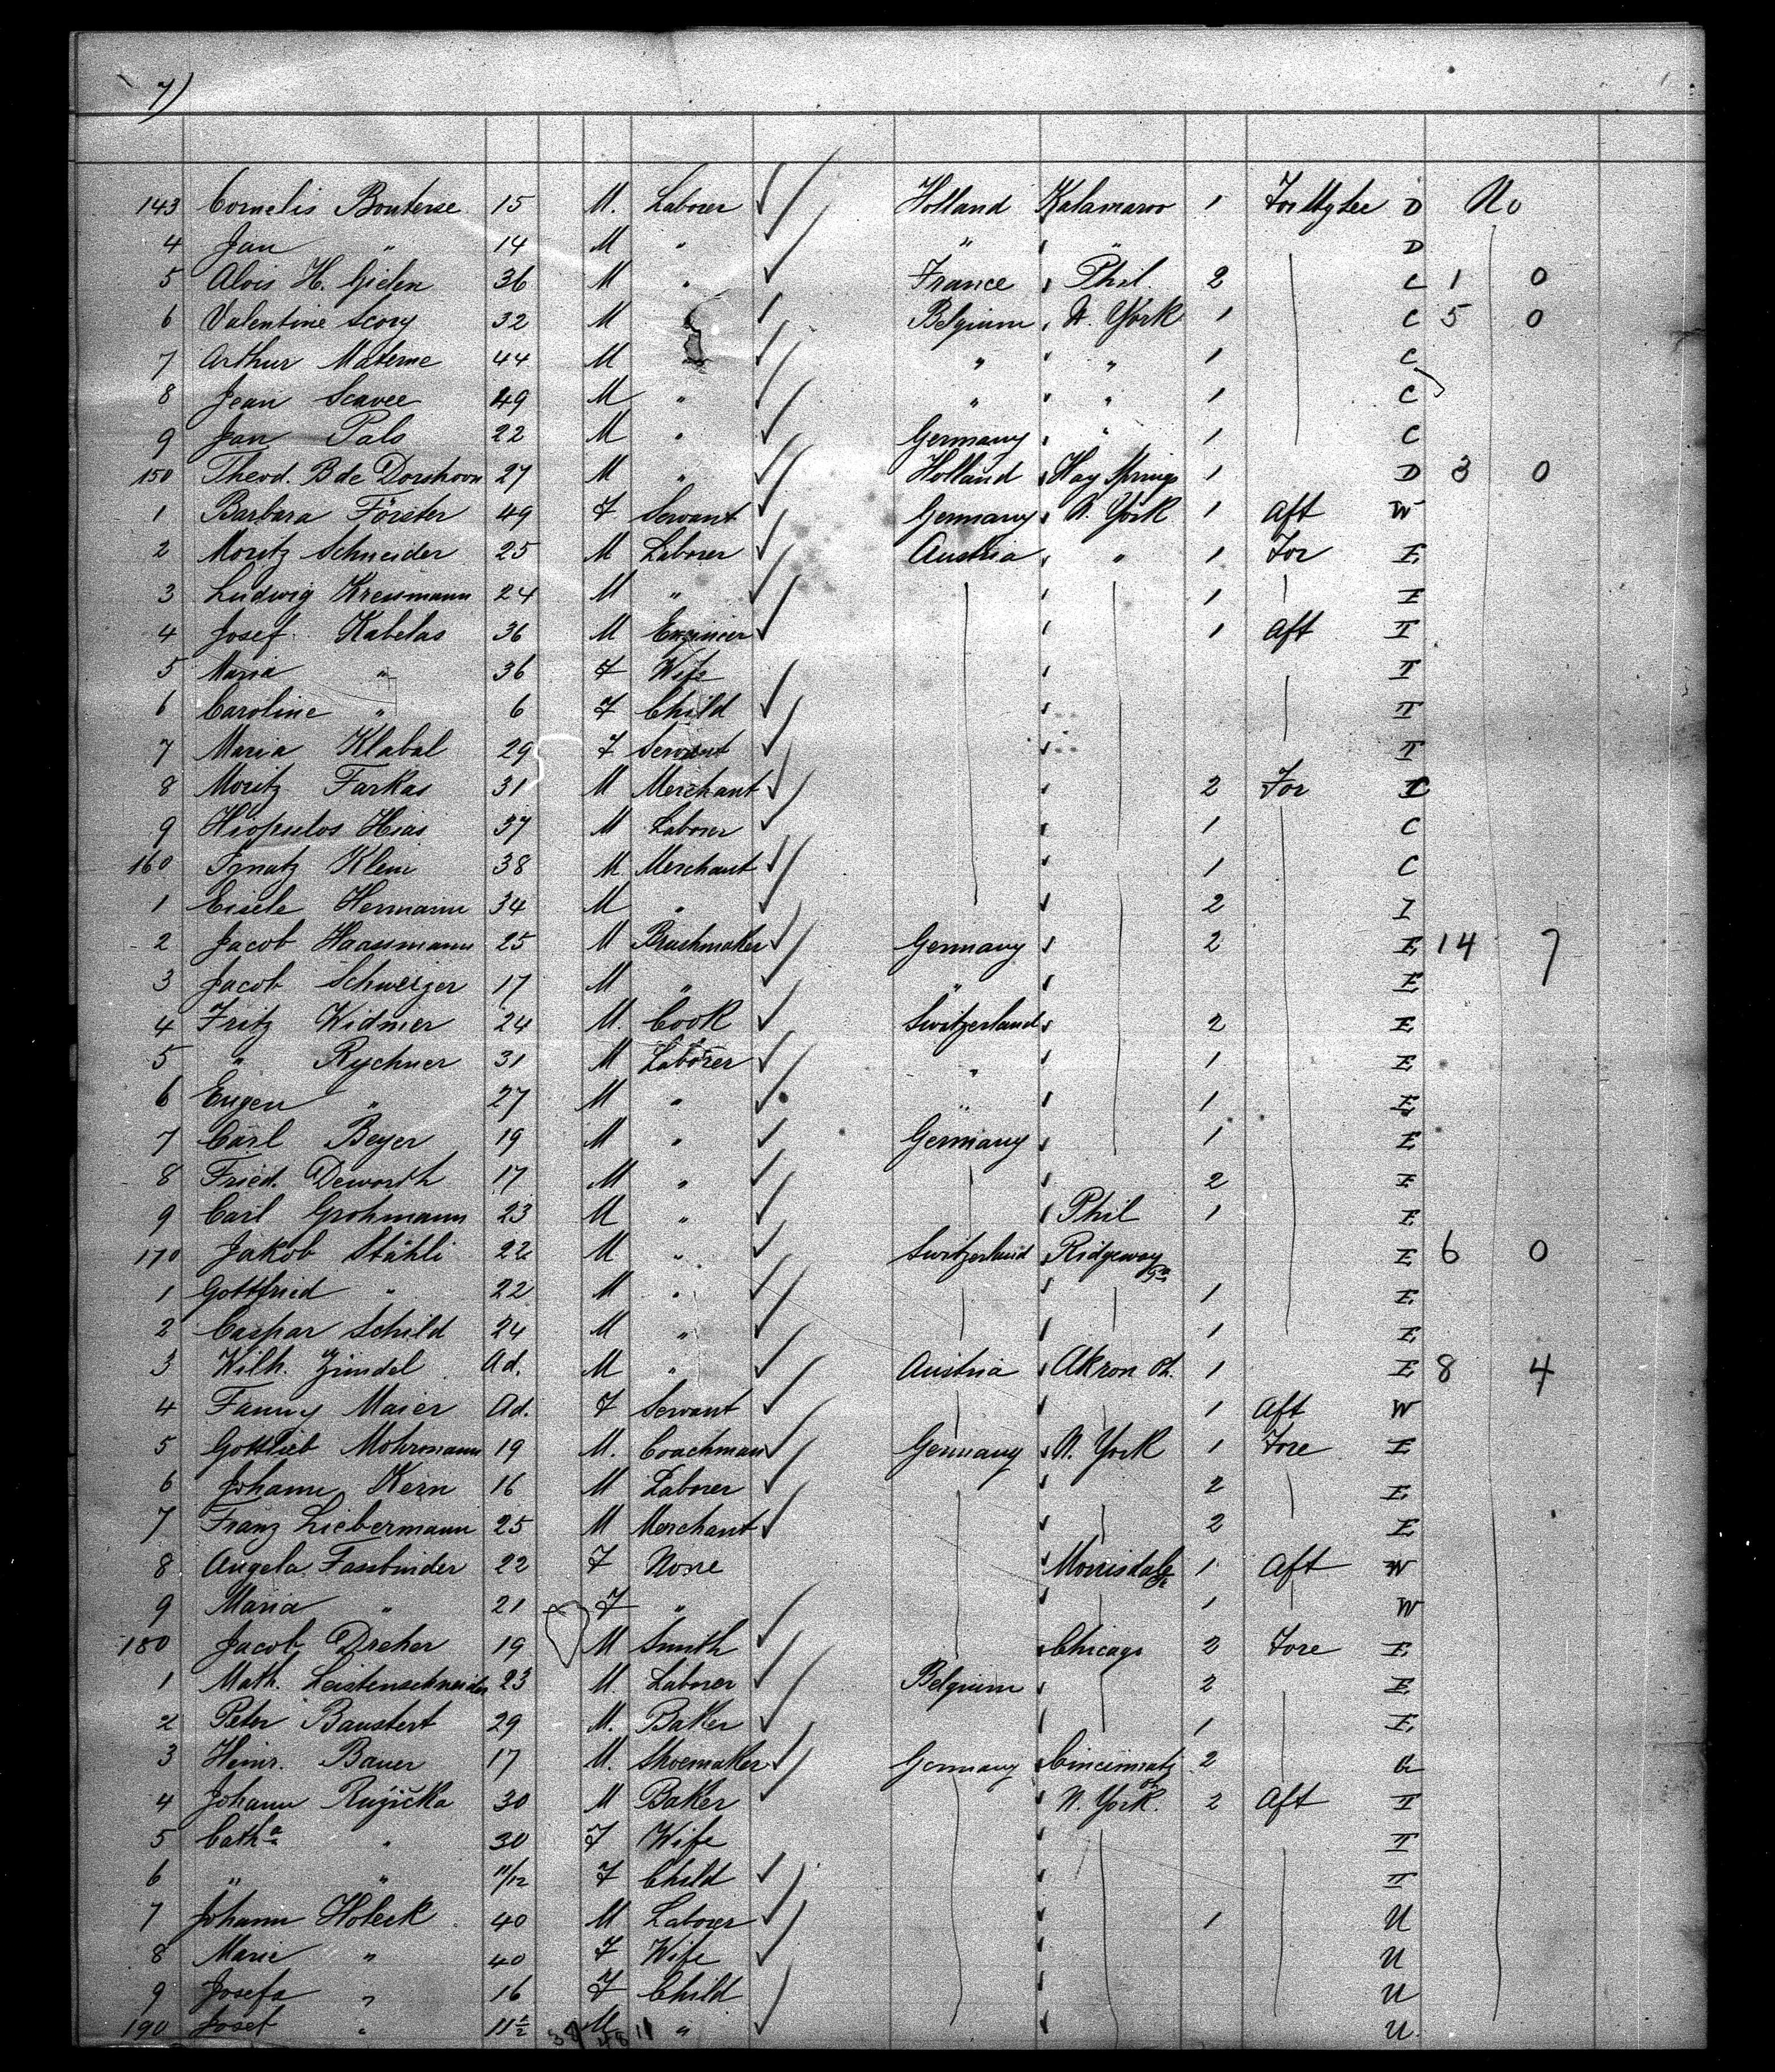 7)
143 Cornelis Bouterse 15 M. Laborer Holland Kalamazoo 1 D No
4 Jan " 14 M " " " D
5 Alois H. Gielen 36 M " France Phil. 2 C 1 0
6 Valentine Scory 32 M Belgium N. York 1 C 5 0
7 Arthur Materne 44 M " " " 1 C
8 Jean Scavee 49 M " " " 1 C
9 Jan Pals 22 M " Germany " 1 C
150 Theod. B de Dorshoon 27 M " Holland Hay Springs 1 D 3 0
1 Barbara Förster 49 F Servant Germany N. York 1 Aft W
2 Moritz Schneider 25 M Laborer Austria " 1 For E
3 Ludwig Kressmann 24 M " 1 E
4 Josef Kabelas 36 M Engineer 1 Aft T
5 Maria " 36 F Wife T
6 Caroline " 6 F Child T
7 Maria Klabal 29 F Servant T
8 Moritz Farkas 31 M Merchant 2 For C
9 Hiopulos Hias 37 M Laborer 1 C
160 Ignatz Klein 38 M Merchant 1 C
1 Eisele Hermann 34 M " 2 I
2 Jacob Haassmann 25 M Brushmaker Germany 2 E 14 7
3 Jacob Schweizer 17 M " " E
4 Fritz Widmer 24 M. Cook Switzerland 2 E
5 " Rychner 31 M Laborer " 1 E
6 Eugen " 27 M " " 1 E
7 Carl Beyer 19 M " Germany 1 E
8 Fried. Deworth 17 M " 2 E
9 Carl Grohmann 23 M " Phil 1 E
170 Jakob Stähli 22 M " Switzerland Ridgeway E 6 0
1 Gottfried " 22 M " 1 E
2 Caspar Schild 24 M " 1 E
3 Wilh. Zindel Ad. M " Austria Akron Oh. 1 E 8 4
4 Fanny Maier Ad. F Servant 1 Aft W
5 Gottlieb Mohrmann 19 M. Coachman Germany N. York 1 Fore E
6 Johann Kern 16 M Laborer 2 E
7 Franz Liebermann 25 M Merchant 2 E
8 Angela Fassbinder 22 F None Morrisdale 1 Aft W
9 Maria " 21 F " 1 W
180 Jacob Dreher 19 M Smith Chicago 2 Fore E
1 Math. Leistenschneider 23 M. Laborer Belgium 2 E
2 Peter Baustert 29 M. Baker 1 E
3 Heinr. Bauer 17 M. Shoemaker Germany Cincinnati Oh 2
4 Johann Ružička 30 M Baker N. York. 2 Aft T
5 Cath<sup>a</sup> " 30 F Wife T
6 " " 11/12 F Child T
7 Johann Holeck 40 M Laborer 1 U
8 Marie " 40 F Wife U
9 Josefa " 16 F Child U
190 Josef " 11½ M " U